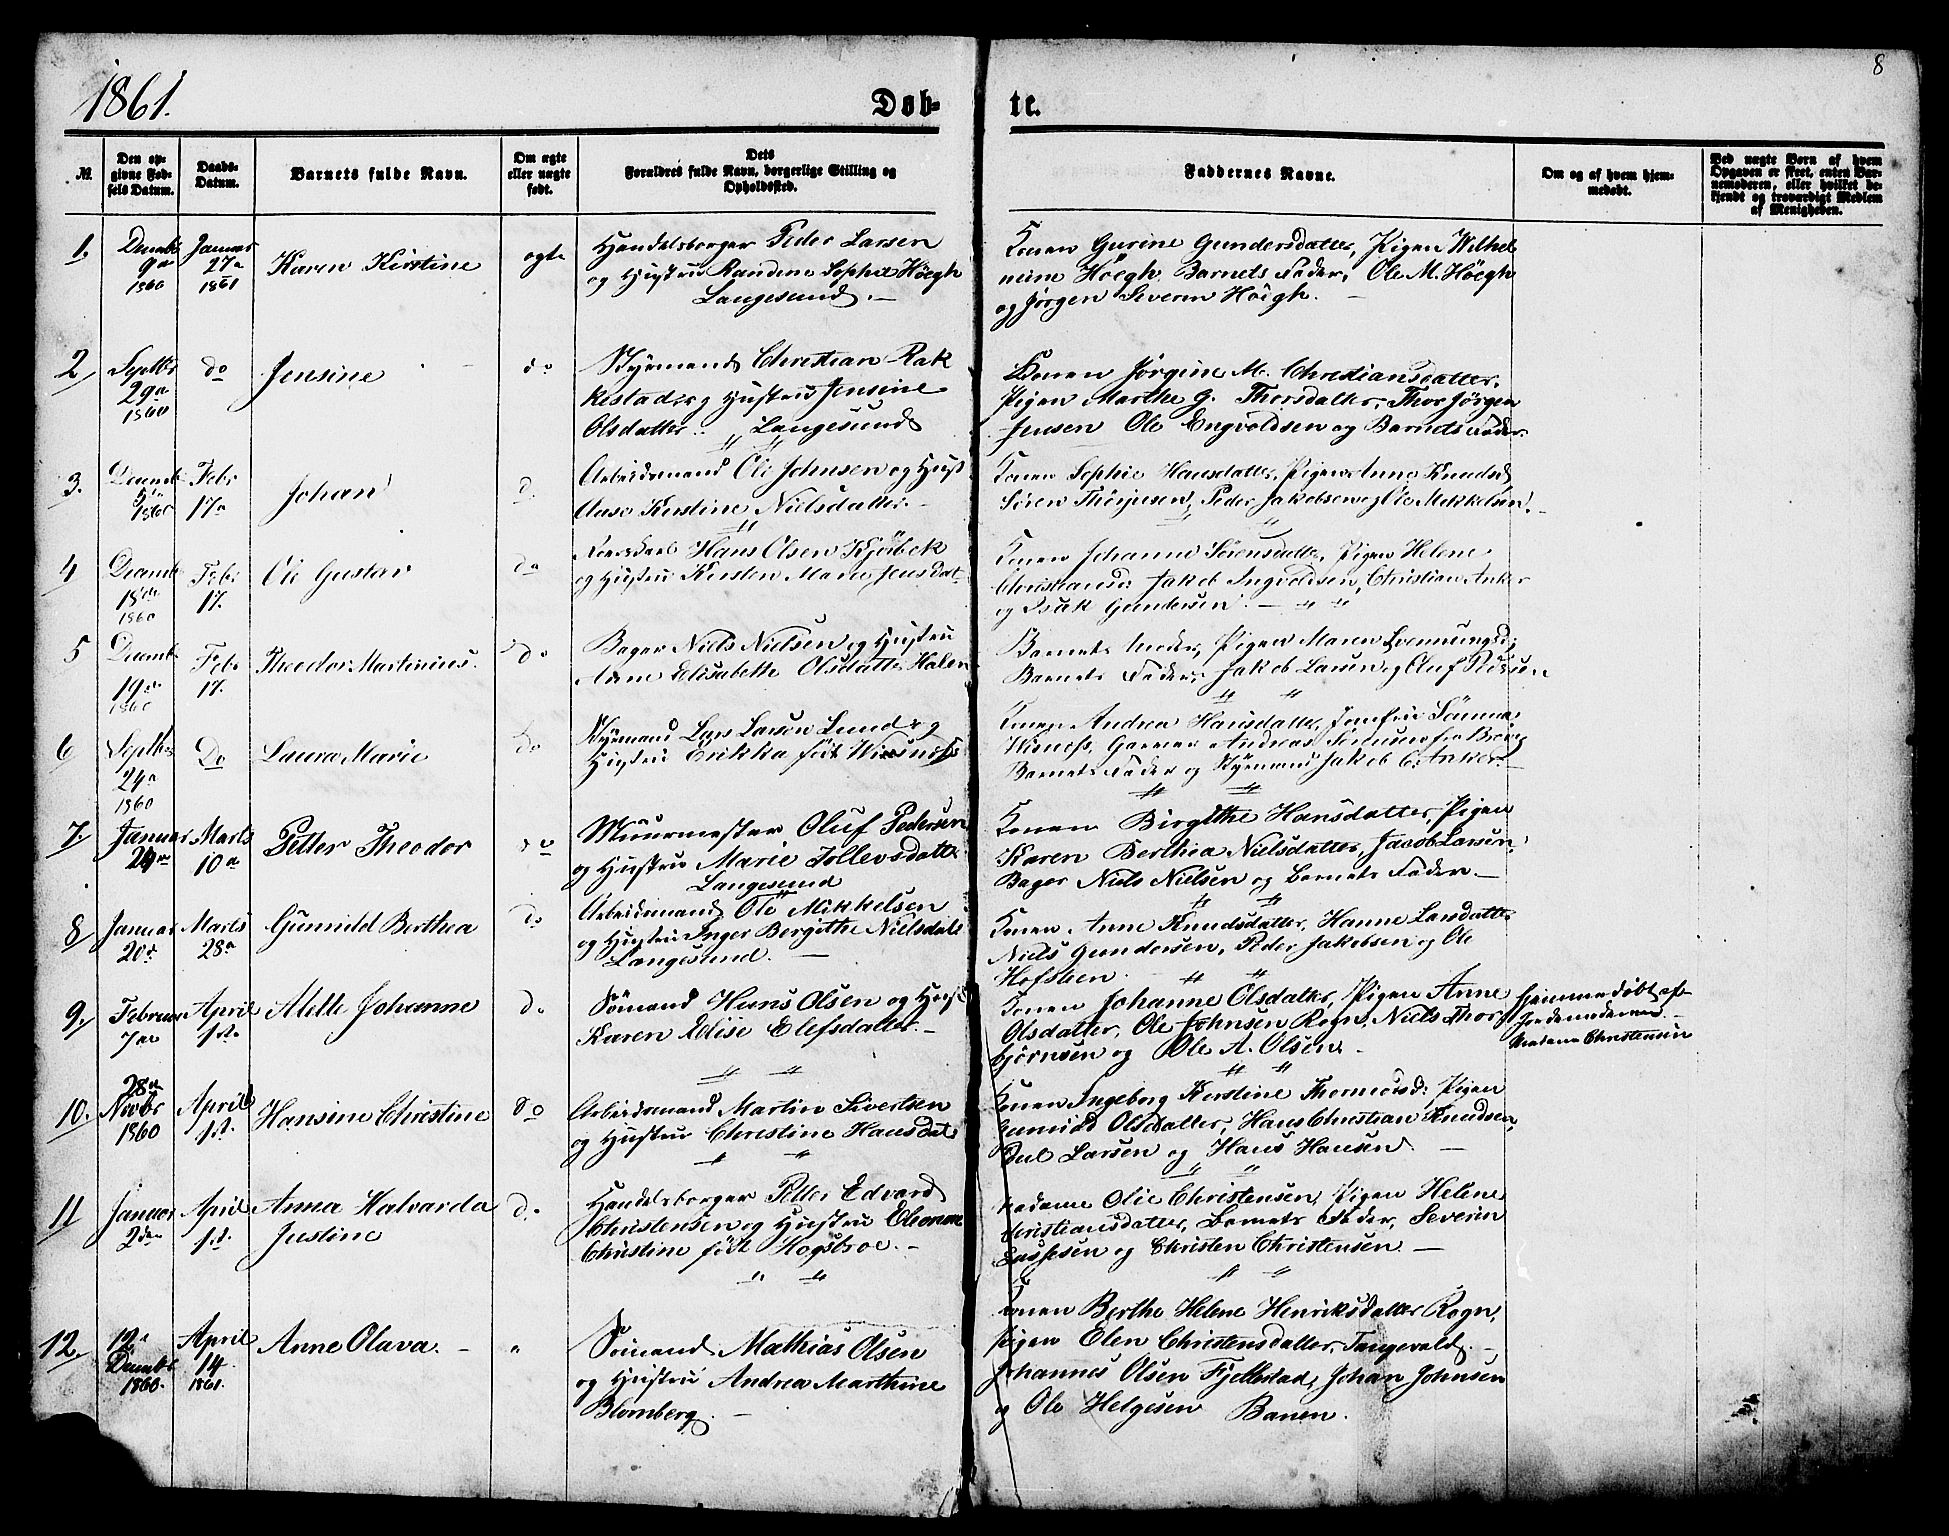 8
1861.
Døb-
te.
№.
Den op-
givne Fød-
sels Datum.
Daabs-
Datum.
Barnets fulde Navn.
Om ægte
eller uægte
født.
Dets
Forældres fulde Navn, borgerlige Stilling og
Opholdssted.
Faddernes Navne.
Om og af hvem hjem-
medøbt.
Ved uægte Børn af hvem
Opgaven er skeet, enten Bar-
nemoderen, eller hvilket be-
kjendt og troværdigt Medlem
af Menigheden.
1.
Decembr
9de
1860
Januar
27de
1861
Karen Kirstine
ægte
Handelsborger Peder Larsen
og Hustru Randine Sophie Höegh
Langesund. —
Konen Gurine Gundersdatter, Pigen Wilhel
mine Höegh, Barnets Fader, Ole M. Höegh
og Jörgen Severin Höigh. —
2
Septbr
29de
1860
do
Jensine
do
Styrmand Christian Rak
kestad og Hustru Jensine
Olsdatter. Langesund
Konen Jörgine M. Christiansdatter.
Pigen Marthe G. Thorsdatter, Thor Jörgen
Jensen Ole Engvoldsen og Barnets Fader.
3.
Decemb
1860
Febr
17de
Johan
d.
Arbeidsmand Ole Johnsen og Hust
Anse Kirstine Nielsdatter. —
Konen Sophie Hansdatter, Pigen Anne Knudsd
Sören Thörjusen, Peder Jakobsen og Ole Mikkelsen. —
4
Decemb
18de
1860
Febr
17.
Ole Gustav
do
Hans Olsen Kjörbek
og Hustru Kirsten Marie Jensdat-
Konen Johanne Sörensdatter, Pigen Helene
Christiansd: Jakob Ingvoldsen, Christian Anker
og Isak Gundersen. —
5
Decemb
19de
1860
Febr
17.
Theodor Martinius.
do
Bager Niels Nielsen og Hustru
Anne Elisabeth Olsdatter Halen
Barnets Moder, Pigen Maren Svennungsd;
Barnets Fader, Jakob Larsen og Oluf Pedersen.
6
Septbr
24de
1860
Do
Laura Marie
do
Styrmand Lars Larsen Lund og
Hustru Erikka födt Wisness
Konen Andrea Hansdatter, Jomfru
Wisness, Garver Andreas Sörensen fra Brevig
Barnets Fader og Styrmand Jakob C. Anker —
7.
Januar
29de
Marts
10de
Petter Theodor
do
Muurmester Oluf Pedersen
og Hustru Marie Tollevsdatter
Langesund
Konen Birgithe Hansdatter, Pigen
Karen Berthea Nielsdatter, Jacob Larsen,
Bager Niels Nielsen og Barnets Fader —
8
Januar
20de
Marts
28de
Gunnild Berthea
do
Arbeidsmand Ole Mikkelsen
og Hustru Inger Bergithe Nielsdatt
Langesund. —
Konen Anne Knudsdatter, Hanne Larsdatter
Niels Gundersen, Peder Jakobsen og Ole
Hofsteen.
9.
Februar
7de
April
1ste
Alette Johanne
do
Sömand Hans Olsen og Hust
Karen Edlise Elefsdatter —
Konen Johanne Olsdatter, Pigen Anne
Olsdatter, Ole Johnsen Rogn, Niels Thor
björnsen og Ole A. Olsen. —
hjemmedöbt af
Jordemoderen
Madame Christensen
10.
28de
Novbr
1860
April
1st.
Hansine Christine
do
Arbeidsmand Martin Sivertsen
og Hustru Christine Hansdatt
Konen Ingeborg Kirstine Thormodsd: Pigen
Gunnild Olsdatter, Hans Christian Knudsen,
Larsen og Hans Hansen. —
11
Januar
2den
April
1st.
Anna Halvarda
Justine
do
Handelsborger Petter Edvard
Christensen og Hustru Eleonore
Christine födt Hogsbroe. —
Madame Olie Christensen, Pigen Helene
Christiansdatter, Barnets Fader, Severin
Lassesen og Christen Christensen —
12.
12te
Decembr
1860.
April
14
1861.
Anne Olava. —
"
Sömand Mathias Olsen
og Hustru Andrea Marthine
Blomberg. —
Konen Berthe Helene Henriksdatter Rogn,
Pigen Elen Christensdatter, Tangevald. —
Johannes Olsen Fjellstad, Johan Johnsen
og Ole Helgesen Banen.